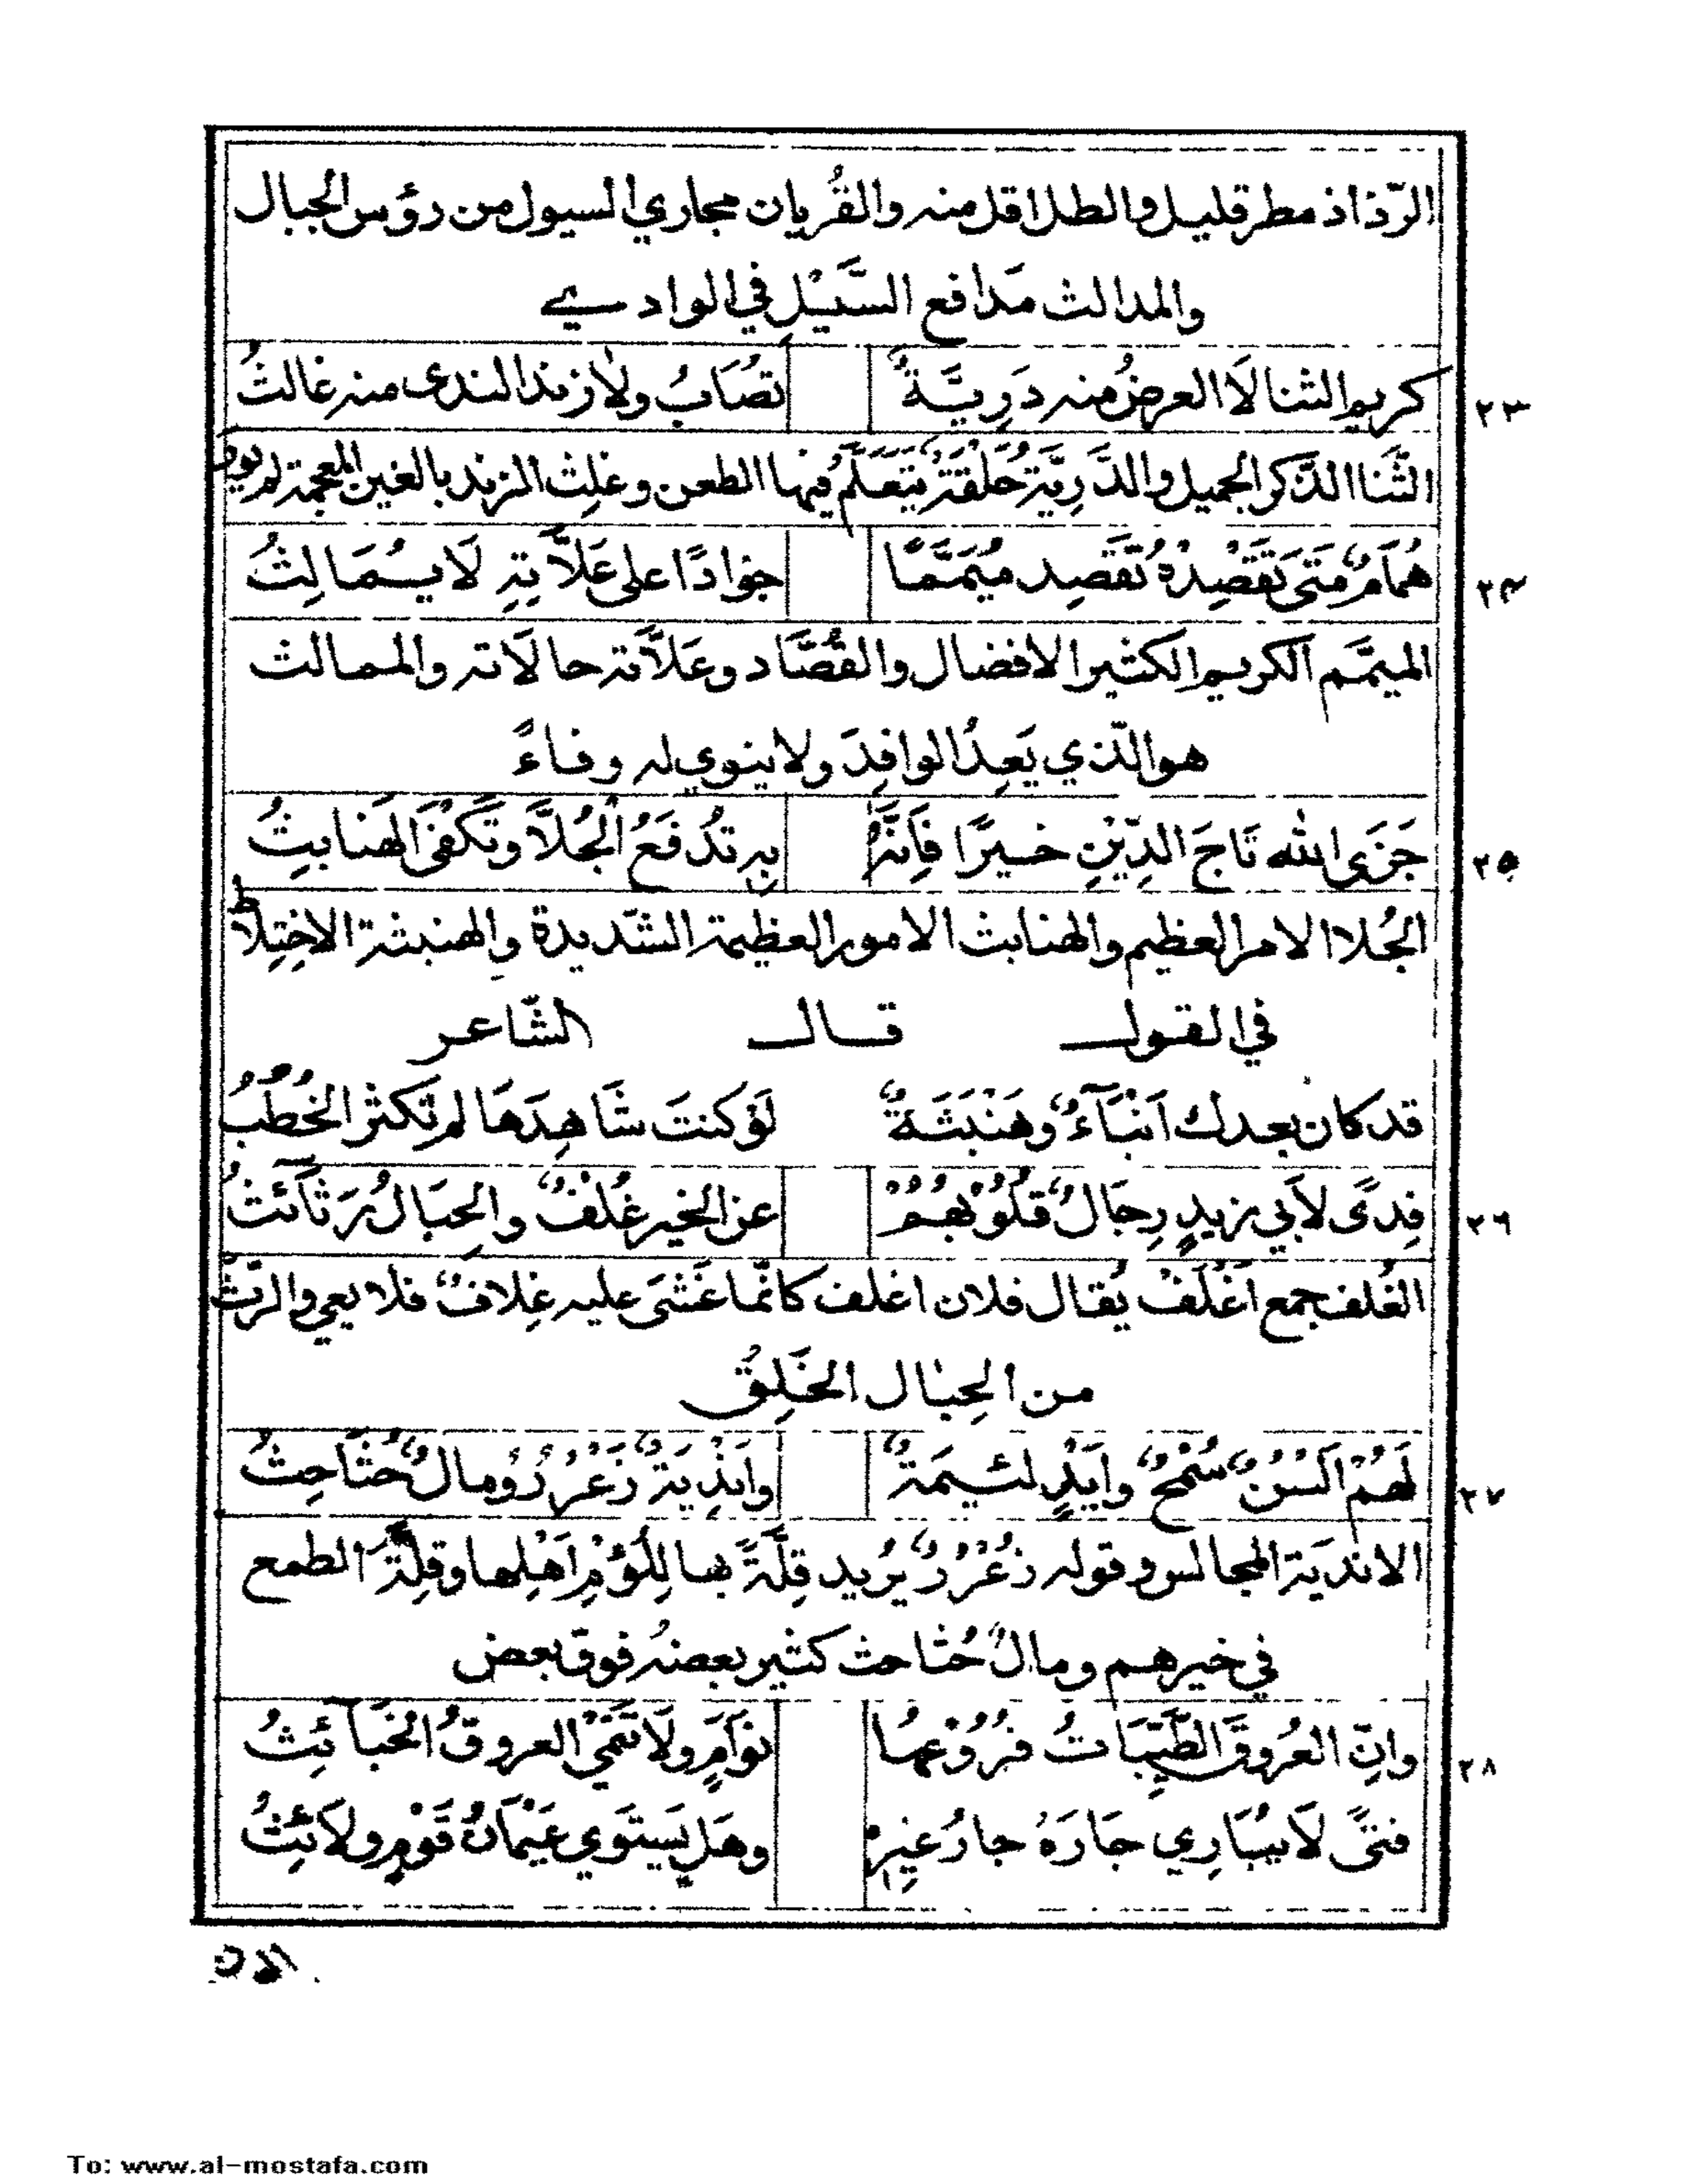 الرّذاذ مطر قليل والطل اقل منه والقُريان مجاري السيول من رؤس الجبال
والمدالث مَدافع السَّيْلِ في الوادي
٢٣ كريم الثنا لَا العرضُ منه دَرِيَّةٌ تصَابُ ولا زند الندى منه غالثُ
الثَّنا الذّكر الجميل والدَّرِيَّة حَلْقَةٌ يتَعَلَّمُ فيها الطعن وغلِث الزند بالغين المعجمة لم يورِ
٢٤ هُمَامٌ مَتَى تَقْصِدْهُ تَقْصِد مُيَمَّمًا جوادًا على عَلاَّتِهِ لَا يُمَالِثُ
الميمَّم الكريم الكثير الافضال والقُصَّاد وعَلاَّته حالَاته والممالث
هو الّذي يَعِدُ الوافِدَ ولا ينوي له وفاءً
٢٥ جَزَى الله تَاجَ الدِّيْنِ خيرًا فَاِنَّهُ بِه تُدْفَعُ الْجُلاَّ وتَكْفَى الهَنابثُ
الجُلا الامر العظيم والهنابث الامور العظيمة الشّديدة والهنبثة الاختِلاط
في القول قال الشّاعر
قد كان بعدك اَنْبَآءٌ وهَنْبَثَةٌ لَوْ كنتَ شَاهِدَهَا لم تَكثر الخُطَبُ
٢٦ فِدىً لاَبي زيدٍ رِجَالٌ قُلُوْبُهُمْ عن الخير غُلْفٌ والحِبَالُ رَثَآئثُ
الغُلف جمع اَغْلَفْ يُقال فلان اغلف كانّما غَشَى عليه غِلافٌ فلا يعي والرَّثّ
من الحِبَال الخَلِقُ
٢٧ لَهُمْ اَلْسُنٌ سُمْحٌ واَيْدٍ لئيمَةٌ واَنْدِيَةٌ زُعْرٌ ومالٌ حُثَاحِثُ
الاندِيَة المجالس وقوله زُعْرٌ يُريد قِلَّةً بها لِلُؤْمِ اَهْلِها وقِلَّةَ الطمع
في خيرهم ومالٌ حُثاحث كثير بعضهُ فوق بعض
٢٨ وانّ العُروقَ الطَّيِّبَاتُ فُرُوْعُها نَوَامٍ ولَا تَنْمي العروقُ الخَبَآئِثُ
فتىً لَا يُبَارِي جَارَهُ جارُ غيرِهْ وهَل يَستَوي عَيْمَانُ قَوْمٍ ولَائثُ
To: www.al-mostafa.com